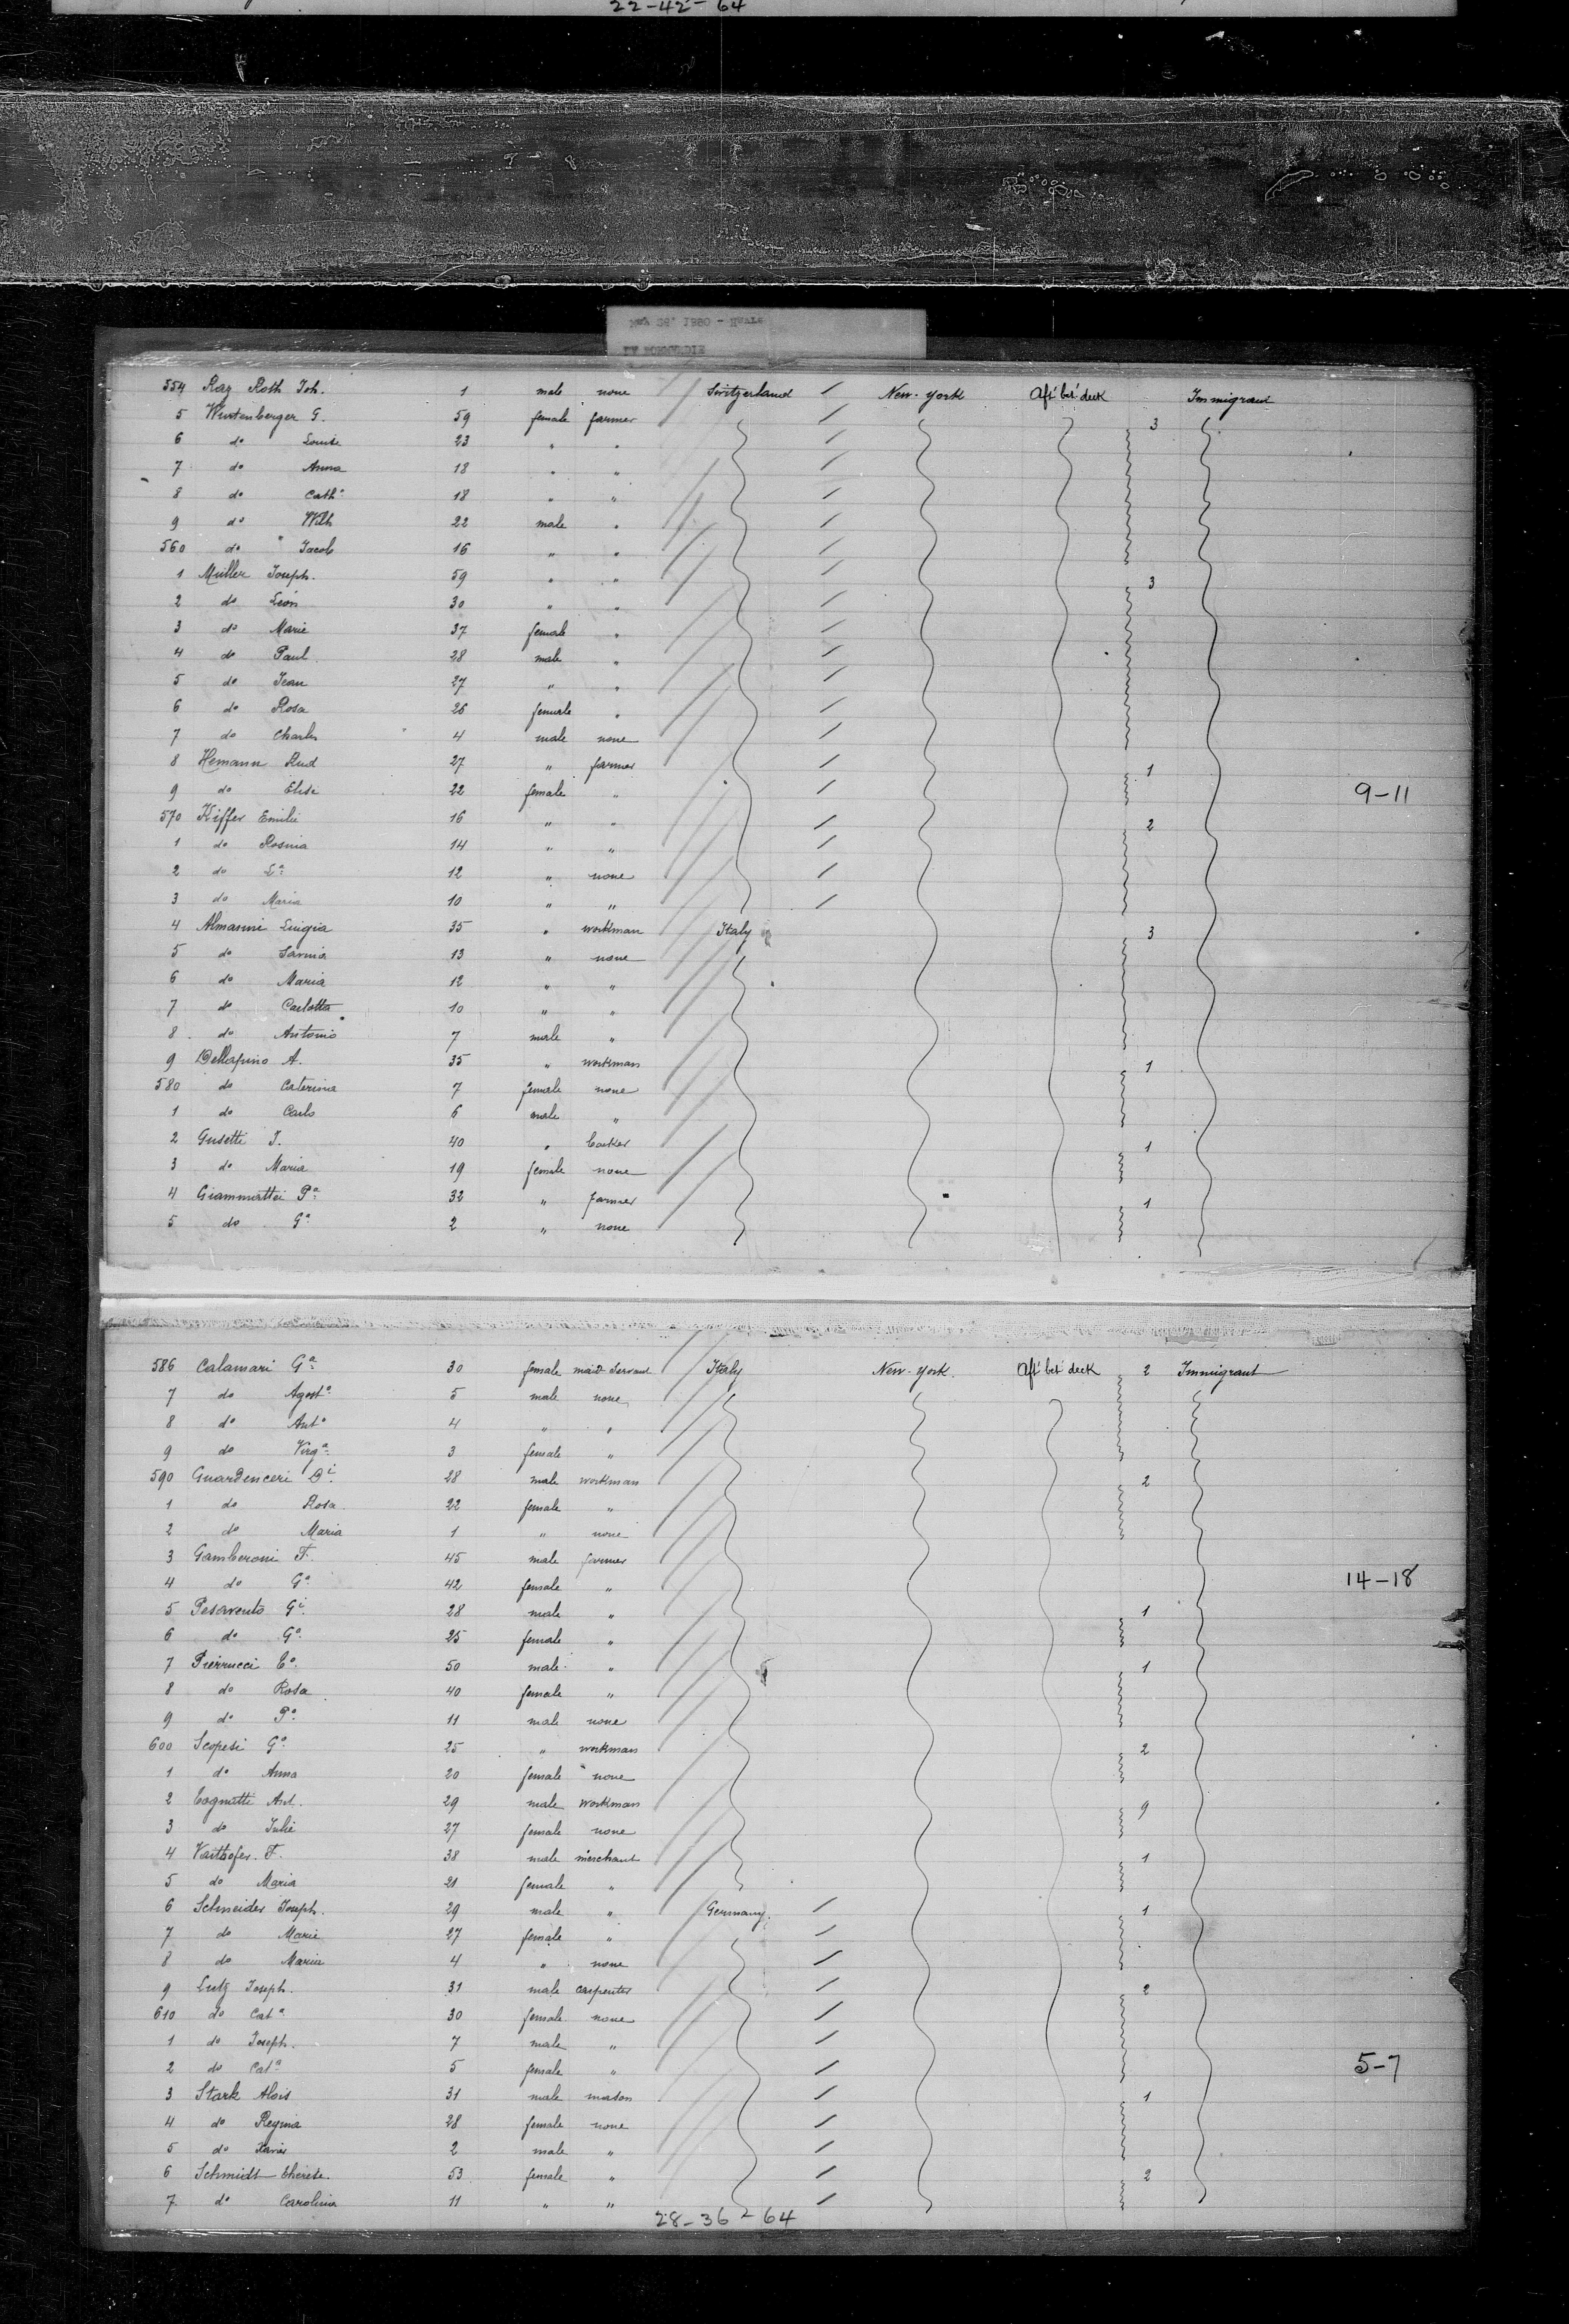 22-42-64
554 Roth Joh. 1 male none Switzerland / New-york Aft' bet' deck Immigrant
5 Wurtenberger G. 59 female farmer / 3
6 do Louise 23 " " /
7 do Anna 18 " " /
8 do Cathᵃ 18 " " /
9 do Wilh 22 male " /
560 do Jacob 16 " " /
1 Müller Joseph. 59 " " / 3
2 do Léon 30 " " /
3 do Marie 37 female " /
4 do Paul 28 male " /
5 do Jean 27 " " /
6 do Rosa 26 female " /
7 do Charles 4 male none /
8 Hemann Rud 27 " farmer / 1
9 do Elise 22 female " /
9-11
570 Kiffer Emilie 16 " " / 2
1 do Rosina 14 " " /
2 do Lᵃ 12 " none /
3 do Maria 10 " " /
4 Almasini Luigia 35 " workman Italy 3
5 do 13 " none
6 do Maria 12 " "
7 do Carlotta 10 " "
8 do Antonio 7 male "
9 Dellapino A. 35 " workman 1
580 do Caterina 7 female none
1 do Carlo 6 male "
2 Gusetti J. 40 " 1
3 do Maria 19 female none
4 Giammattei Pᵃ 32 " farmer 1
5 do Gᵃ 2 " none
586 Calamari Gᵃ 30 female maid Servant Italy New-york. Aft' bet' deck 2 Immigrant
7 do Agostᵒ 5 male none
8 do Antᵒ 4 " "
9 do Virgᵃ 3 female "
590 Guardenceri Dⁱ 28 male workman 2
1 do Rosa 22 female "
2 do Maria 1 " none
3 Gamberoni F. 45 male farmer
4 do Gᵃ 42 female "
14-18
5 Pesavento Gⁱ 28 male " 1
6 do Gᵃ 25 female "
7 Pierrucci Cᵒ 50 male " 1
8 do Rosa 40 female "
9 do Pᵒ 11 male none
600 Scopesi Gᵒ 25 " workman 2
1 do Anna 20 female none
2 Cognatti Ant. 29 male workman 9
3 do Julie 27 female none
4 F. 38 male merchant 1
5 do Maria 21 female "
6 Schneider Joseph. 29 male " Germany. / 1
7 do Marie 27 female " /
8 do Maria 4 " none /
9 Lutz Joseph. 31 male carpenter / 2
610 do Catᵃ 30 female none /
1 do Joseph. 7 male " /
2 do Catᵃ 5 female " /
5-7
3 Stark Alois 31 male mason / 1
4 do Regina 28 female none /
5 do Xavier 2 male " /
6 Schmidt Therese. 53 female " / 2
7 do Carolina 11 " " /
28-36-64